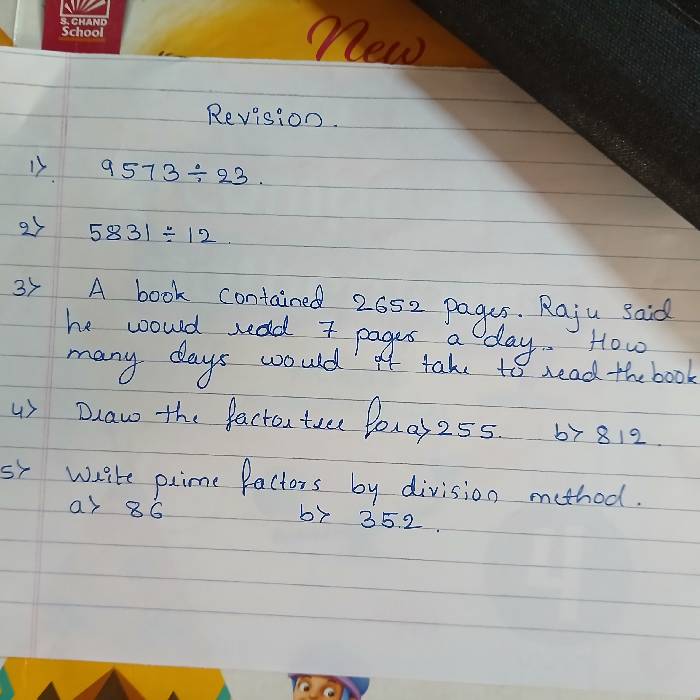 S. CHAND
School
New
Revision.
1> 9573 ÷ 23.
2> 5831 ÷ 12.
3> A book contained 2652 pages. Raju said
he would read 7 pages a day. How
many days would it take to read the book
4> Draw the factor tree for a> 255. b> 812.
5> Write prime factors by division method.
a> 86 b> 352.